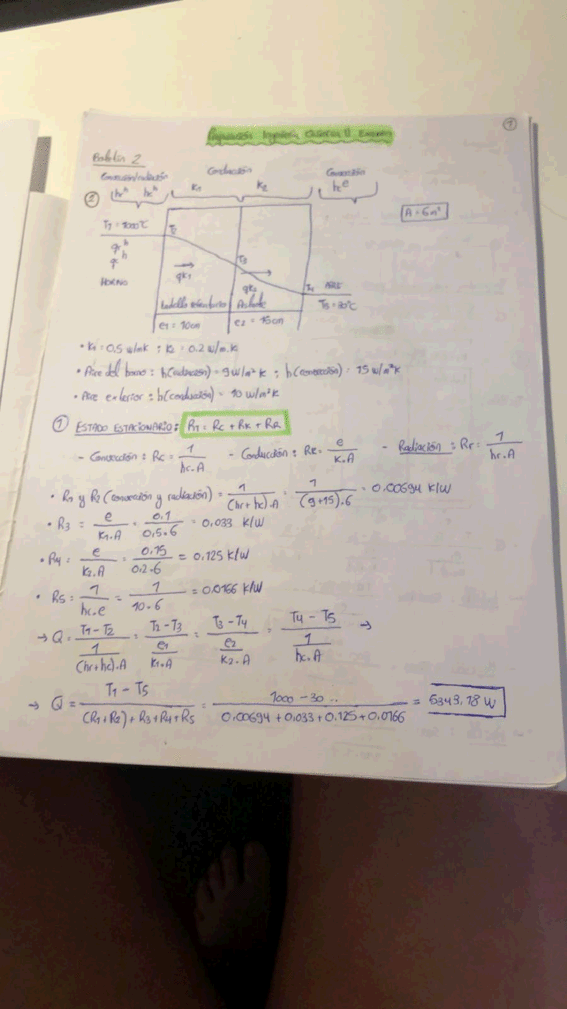 ①
Preparación Ingeniería Química II Examen
Boletín 2
Convección/radiación Conducción Convección
hrʰ hcʰ K1 K2 hcᵉ
②
A = 6 m²
T1 = 1000°C T2
qrʰ
qcʰ
T3
qK1 qK2
HORNO
T4 AIRE
T5 = 30°C
Ladrillo refractario Asbesto
e1 = 10cm e2 = 15cm
• K1 = 0.5 w/mK ; K2 = 0.2 W/m.K
• Aire del horno : h(radiación) = 9 W/m²K ; h(convección) = 15 W/m²K
• Aire exterior : h(conducción) = 10 W/m²K
① ESTADO ESTACIONARIO: RT = RC + RK + RR
- Convección : RC = 1/hc.A - Conducción : RK = e/K.A - Radiación : Rr = 1/hr.A
• R1 y R2 (convección y radiación) = 1/(hr + hc).A = 1/(9+15).6 = 0.00694 K/W
• R3 = e/K1.A = 0.1/0.5.6 = 0.033 K/W
• R4 = e/K2.A = 0.15/0.2.6 = 0.125 K/W
• R5 = 1/hc.e = 1/10.6 = 0.0166 K/W
→ Q = T1 - T2/1/(hr+hc).A = T2 - T3/e1/K1.A = T3 - T4/e2/K2.A = T4 - T5/1/hc.A →
→ Q = T1 - T5/(R1+R2) + R3 + R4 + R5 = 1000 - 30/0.00694 + 0.033 + 0.125 + 0.0166 = 5343.18 W